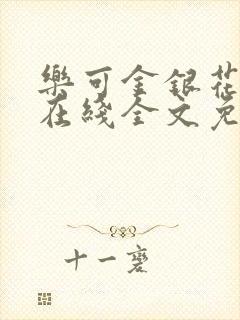 樂可金銀花
在綫全文免
十一